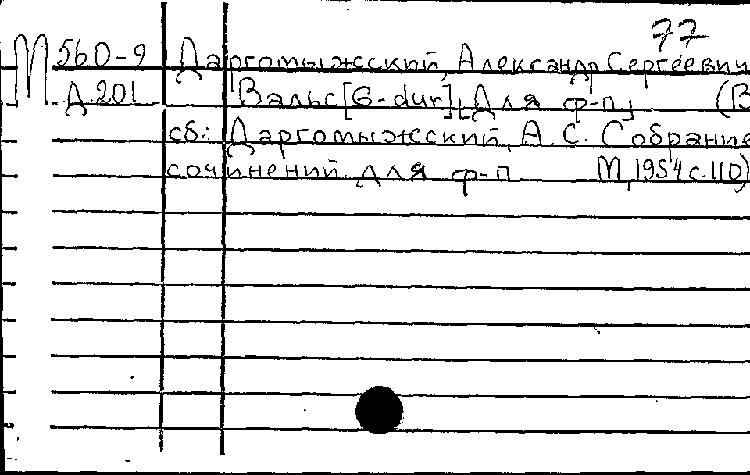 77
М 560-9 Даргомыжский, Александр Сергеевич
Д 201 Вальс [G-dur]. [Для ф-п] (В
сб.: Даргомыжский, А. С. Собрание
сочинений для ф-п М, 1954 с. 110)